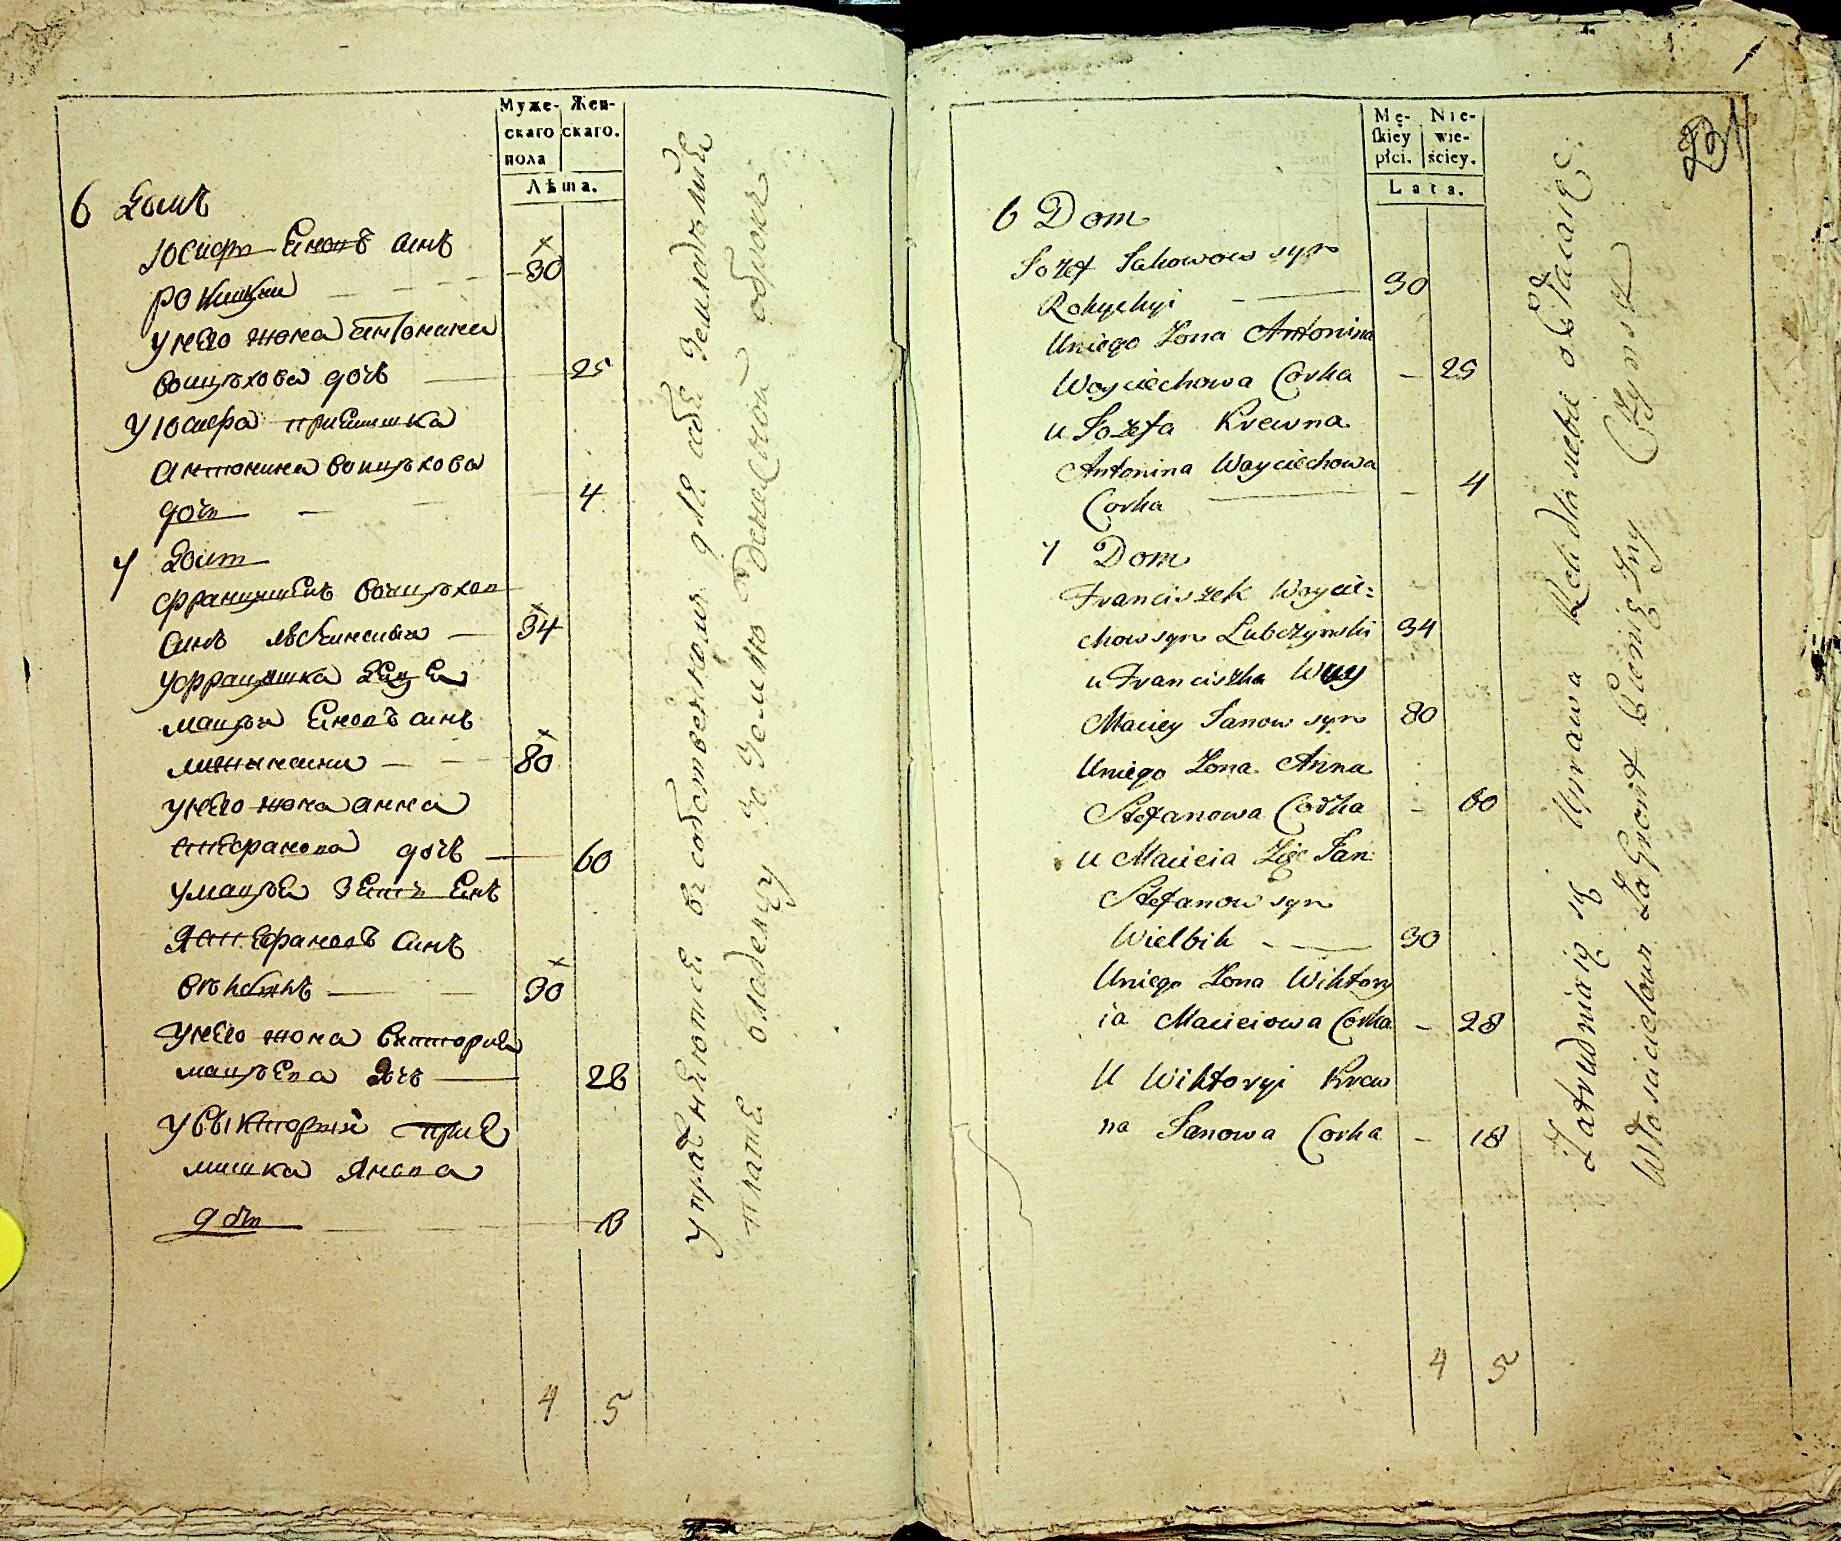 Муже- Жен-
скаго скаго.
пола
Лѣта.
6 Домъ
Юсифъ Яновъ сынъ
30
Рокицки
у него жона антонина
воицѣхова дочь 25
у Юсифа приемишка
антонина воицѣхова
дочь 4
7 Домъ
францишекъ воицѣхов
сынъ 34
у францишка
мацѣй Яновъ сынъ
80
у него жона анна
стефанова дочь 60
у мацѣя зять Янъ
стефановъ сынъ
30
у него жона виктория
мацѣева дочь 28
у викторыи прие
мишка Янова
дочь 18
4 5
упражняютсе въ собственномъ для себя земледелии
платя владельцу за землю денежной оброкъ
231
Mę- Nie-
skiey wie-
płci. ściey.
Lata.
6 Dom
Jozef Jakowow syn
Rokyckyi 30
Uniego Zona Antonina
Woyciechowa Corka 25
u Jozefa Krewna
Antonina Woyciechowa
Corka 4
7 Dom
Franciszek Woycie:
chow syn Lubczynski 34
u Franciszka Wuy
Maciey Janow syn 80
Uniego Zona Anna
Stefanowa Corka 60
u Macieia Zięc Jan
Stefanow syn
Wielbik 30
Uniego Zona Wiktory
ia Macieiowa Corka 28
U Wiktoryi Krew
na Janowa Corka 18
4 5
Zatrudniaią się Uprawą Roli dla siebie opłacaiąc
Włascicielowi za Grunt Pieniężny Czynsz